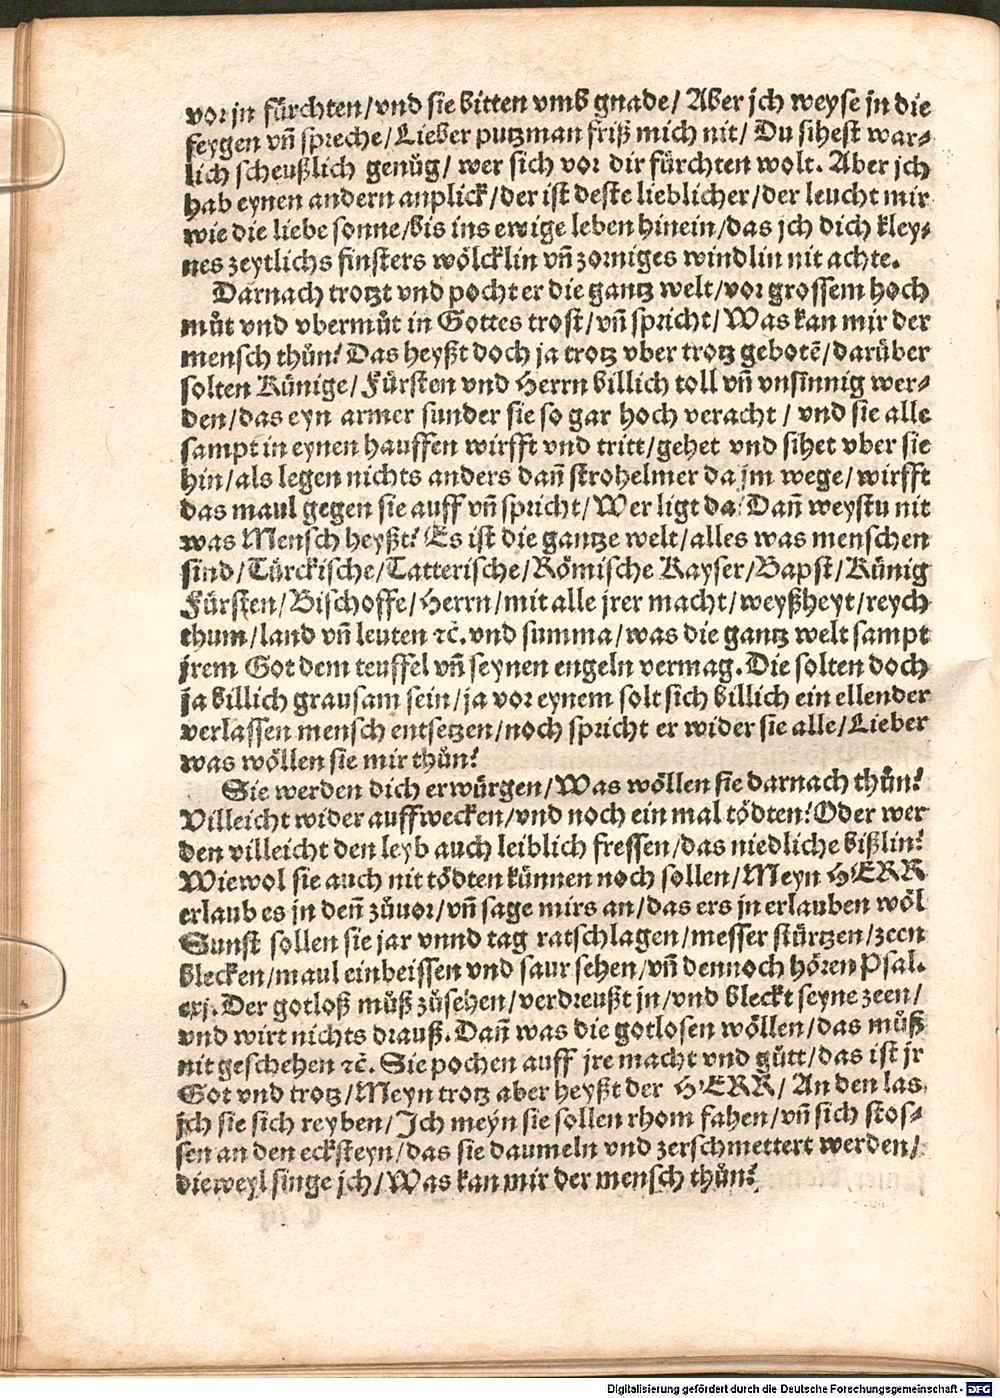 vor jn fürchten/vnd sie bitten vmb gnade/ Aber jch weyse jn die
feygen vñ spreche/Lieber putzman friß mich nit/ Du sihest war-
lich scheußlich genůg/ wer sich vor dir fürchten wolt. Aber jch
hab eynen andern anplick/der ist deste lieblicher/der leucht mir
wie die liebe sonne/bis ins ewige leben hinein/das jch dich kley-
nes zeytlichs finsters wölcklin vñ zorniges windlin nit achte.
Darnach trotzt vnd pocht er die gantz welt/vor grossem hoch
můt vnd vbermůt in Gottes trost/vñ spricht/Was kan mir der
mensch thůn? Das heyßt doch ja trotz vber trotz gebotē/darüber
solten Künige/Fürsten vnd Herrn billich toll vñ vnsinnig wer-
den/das eyn armer sunder sie so gar hoch veracht / vnd sie alle
sampt in eynen hauffen wirfft vnd tritt/gehet vnd sihet vber sie
hin/als legen nichts anders dañ strohelmer da jm wege/wirfft
das maul gegen sie auff vñ spricht/Wer ligt da? Dañ weystu nit
was Mensch heyßt? Es ist die gantze welt/alles was menschen
sind/Türckische/Tatterische/Römische Kayser/Bapst/Künig
Fürsten/Bischoffe/Herrn/mit alle jrer macht/weyßheyt/reych
thum/land vñ leuten ꝛc̄. vnd summa/was die gantz welt sampt
jrem Got dem teuffel vñ seynen engeln vermag. Die solten doch
ja billich grausam sein/ja vor eynem solt sich billich ein ellender
verlassen mensch entsetzen/noch spricht er wider sie alle/Lieber
was wöllen sie mir thůn?
Sie werden dich erwürgen/Was wöllen sie darnach thůn?
Villeicht wider auffwecken/vnd noch ein mal tödten? Oder wer
den villeicht den leyb auch leiblich fressen/das niedliche bißlin?
Wiewol sie auch nit tödten künnen noch sollen/Meyn HERR
erlaub es jn deñ zůuor/vñ sage mirs an/das ers jn erlauben wöl
Sunst sollen sie jar vnnd tag ratschlagen/messer stürtzen/zeen
blecken/maul einbeissen vnd saur sehen/vñ dennoch hören Psal.
cxj. Der gotloß můß zůsehen/verdreußt jn/vnd bleckt seyne zeen/
vnd wirt nichts drauß. Dañ was die gotlosen wöllen/das můß
nit geschehen ꝛc̄. Sie pochen auff jre macht vnd gůtt/das ist jr
Got vnd trotz/Meyn trotz aber heyßt der HERR/ An den las
jch sie sich reyben/Ich meyn sie sollen rhom fahen/vñ sich stos-
sen an den ecksteyn/das sie daumeln vnd zerschmettert werden/
dieweyl singe jch/Was kan mir der mensch thůn?
Digitalisierung gefördert durch die Deutsche Forschungsgemeinschaft - DFG